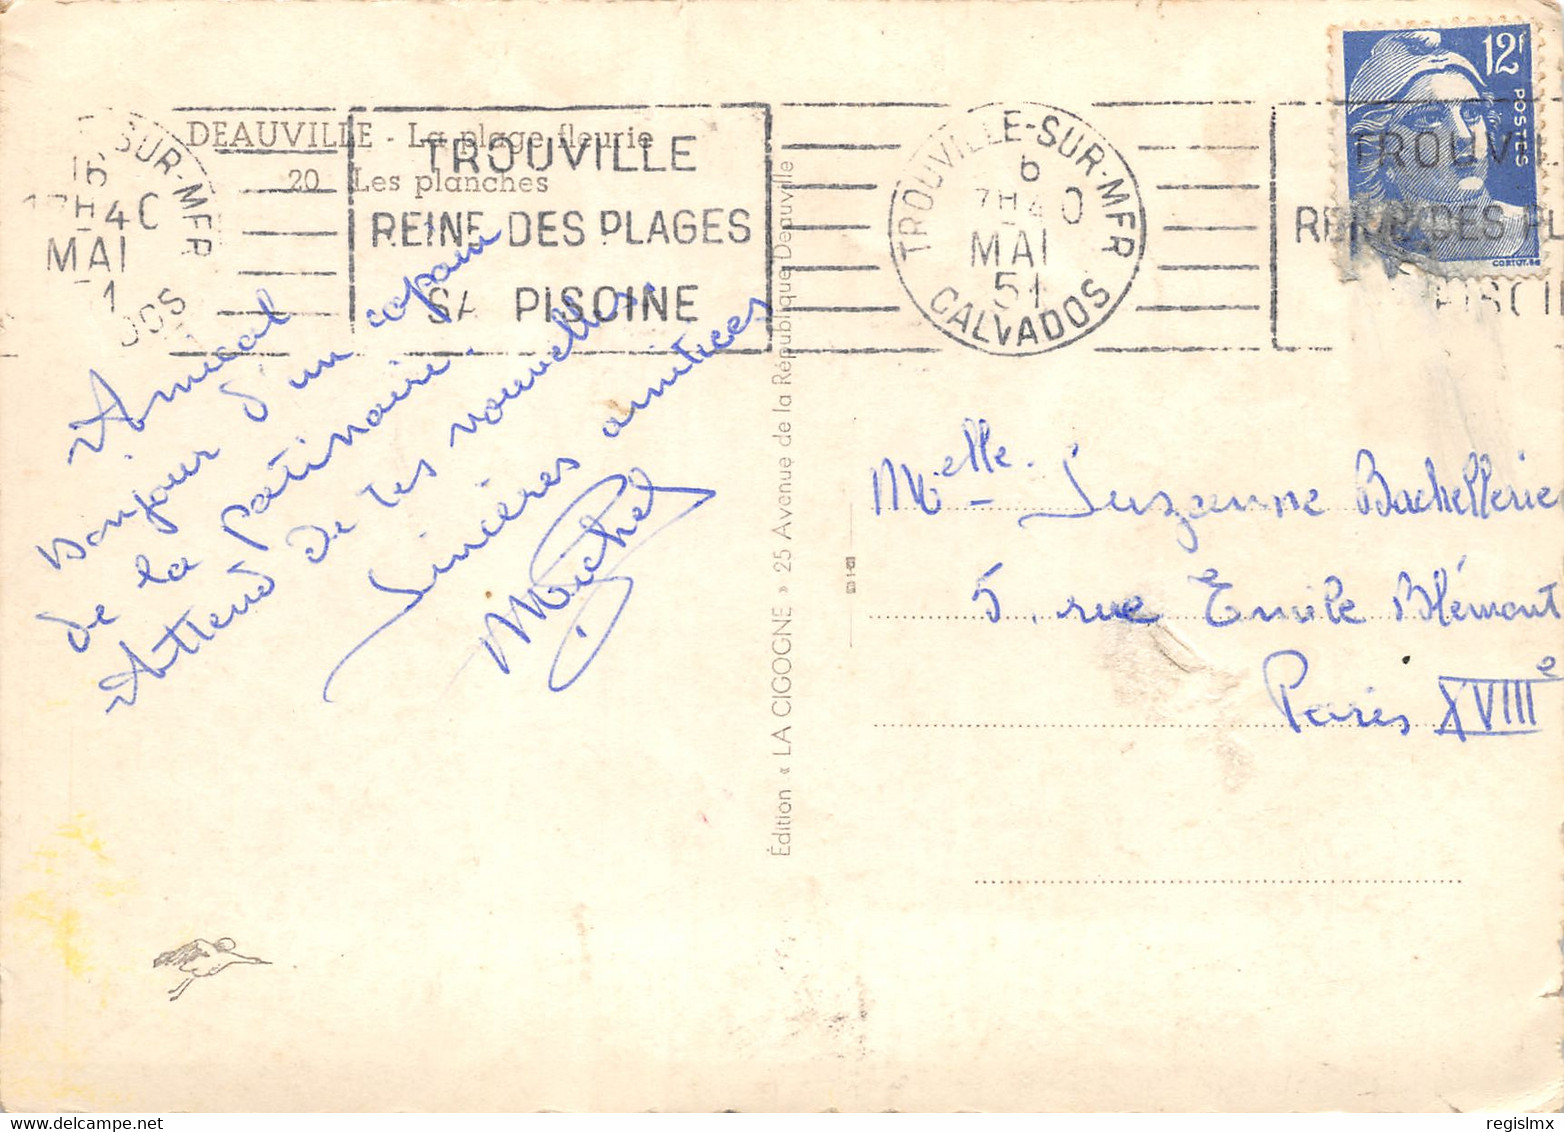 DEAUVILLE - La plage fleurie
20 Les planches
SUR-MER
16
17H40
MAI
TROUVILLE
REINE DES PLAGES
SA PISCINE
TROUVILLE-SUR-MER
CALVADOS
MAI
51
12F
POSTES
TROUVIL
REINE DES PL
PISCIN
Amical
bonjour d'un copain
de la patinoire.
Attend de tes nouvelles.
Sincères amitiées
Michel
Édition « LA CIGOGNE » 25 Avenue de la République Deauville
Melle. Suzanne Bachellerie
5, rue Emile Blémont
Paris XVIIIe
delcampe.net
regislmx